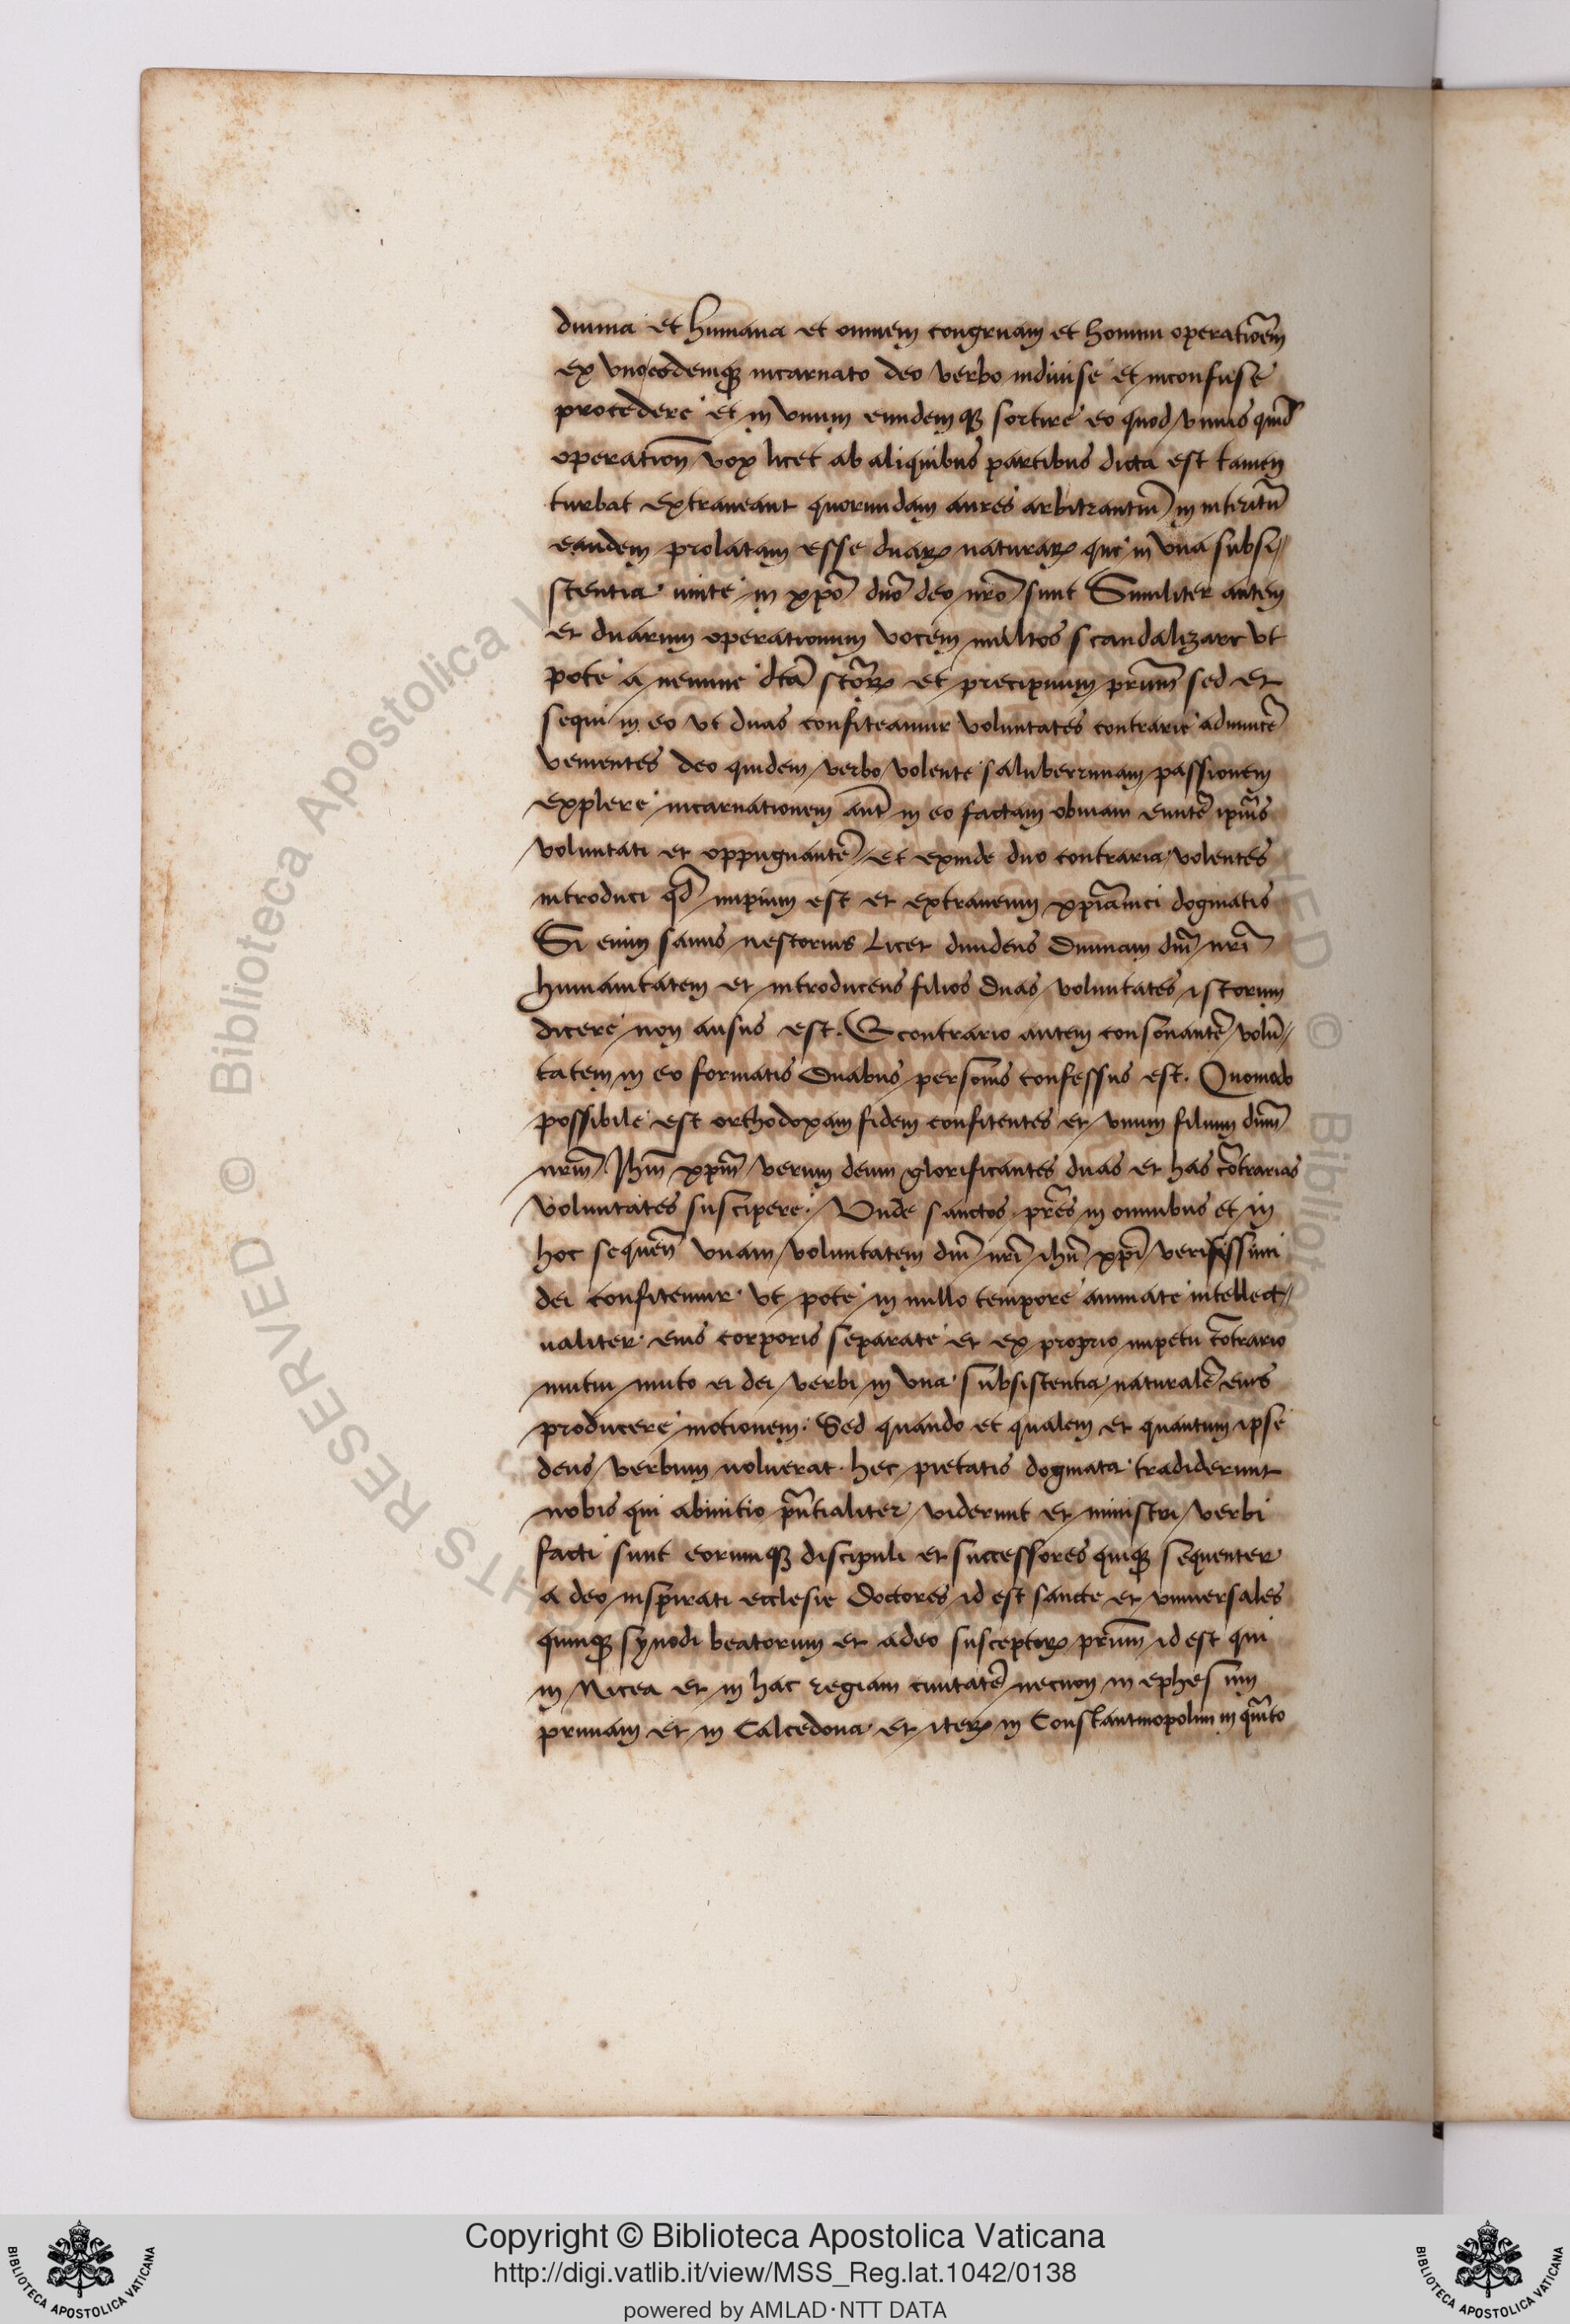 diuina et humana et omnem congruam et homini operatiōem
ex vno eodemqꝫ incarnato deo verbo indiuise et inconfuse
procedere et in vnum eundemqꝫ sortire eo quod vnius quid̄
operation̄ vox licet ab aliquibus partibus dicta est tamen
turbat extraneant quorundam aures arbitrantiū in interitū
eandem prolatam esse duaꝝ naturaꝝ que in vna subsi
stentia vnite in xp̄o dn̄o deo nr̄o sunt Similiter autem
et duarum operationum vocem multos scandalizare vt
pote a nemine dc̄a sc̄oꝝ et precipuum pr̄um sed et
sequi in eo vt duas confiteamur voluntates contrarie adinuicē
venientes deo quidem verbo volente saluberrimam passionem
explere incarnationem aūt in eo factam obuiam euntē ip̄ius
voluntati et oppugnantē et exinde duo contraria volentes
introduci qd̄ impium est et extraneum xp̄iānici dogmatis
Si enim sanus nestorius Licet diuidens Diuinam dn̄i nr̄i
humanitatem et introducens filios duas voluntates istorum
dicere non ausus est. Econtrario autem consonantē volū
tatem in eo formatis Duabus personis confessus est. Quomodo
possibile est orthodoxam fidem confitentes et vnum filium dn̄m
nr̄m Ihm̄ xp̄m verum deum glorificantes duas et has cōtrarias
voluntates suscipere. Vnde sanctos pr̄es in omnibus et in
hoc sequen̄ vnam voluntatem dn̄i nr̄i ihū xp̄i verissimi
dei confitemur vt pote in nullo tempore animate intellect
ualiter eius corporis separate et ex proprio impetu cōtrario
nutui ei dei verbi in vna subsistentia naturalē eius
producere motionem. Sed quando et qualem et quantum ipse
deus verbum voluerat. hec pietatis dogmata tradiderunt
nobis qui abinitio pn̄tialiter viderunt et ministri verbi
facti sunt eorumqꝫ discipuli et successores quiqꝫ sequenter
a deo inspirati ecclesie Doctores id est sancte et vniuersales
quinqꝫ synodi beatorum et adeo susceptoꝝ pr̄um id est qui
in Nicea et in hac regiam ciuitatē necnon in ephesum
primam et in Calcedona et iteꝝ in Constantinopolim in quīto
Copyright © Biblioteca Apostolica Vaticana
http://digi.vatlib.it/view/MSS_Reg.lat.1042/0138
powered by AMLAD·NTT DATA
BIBLIOTECA APOSTOLICA VATICANA
BIBLIOTECA APOSTOLICA VATICANA